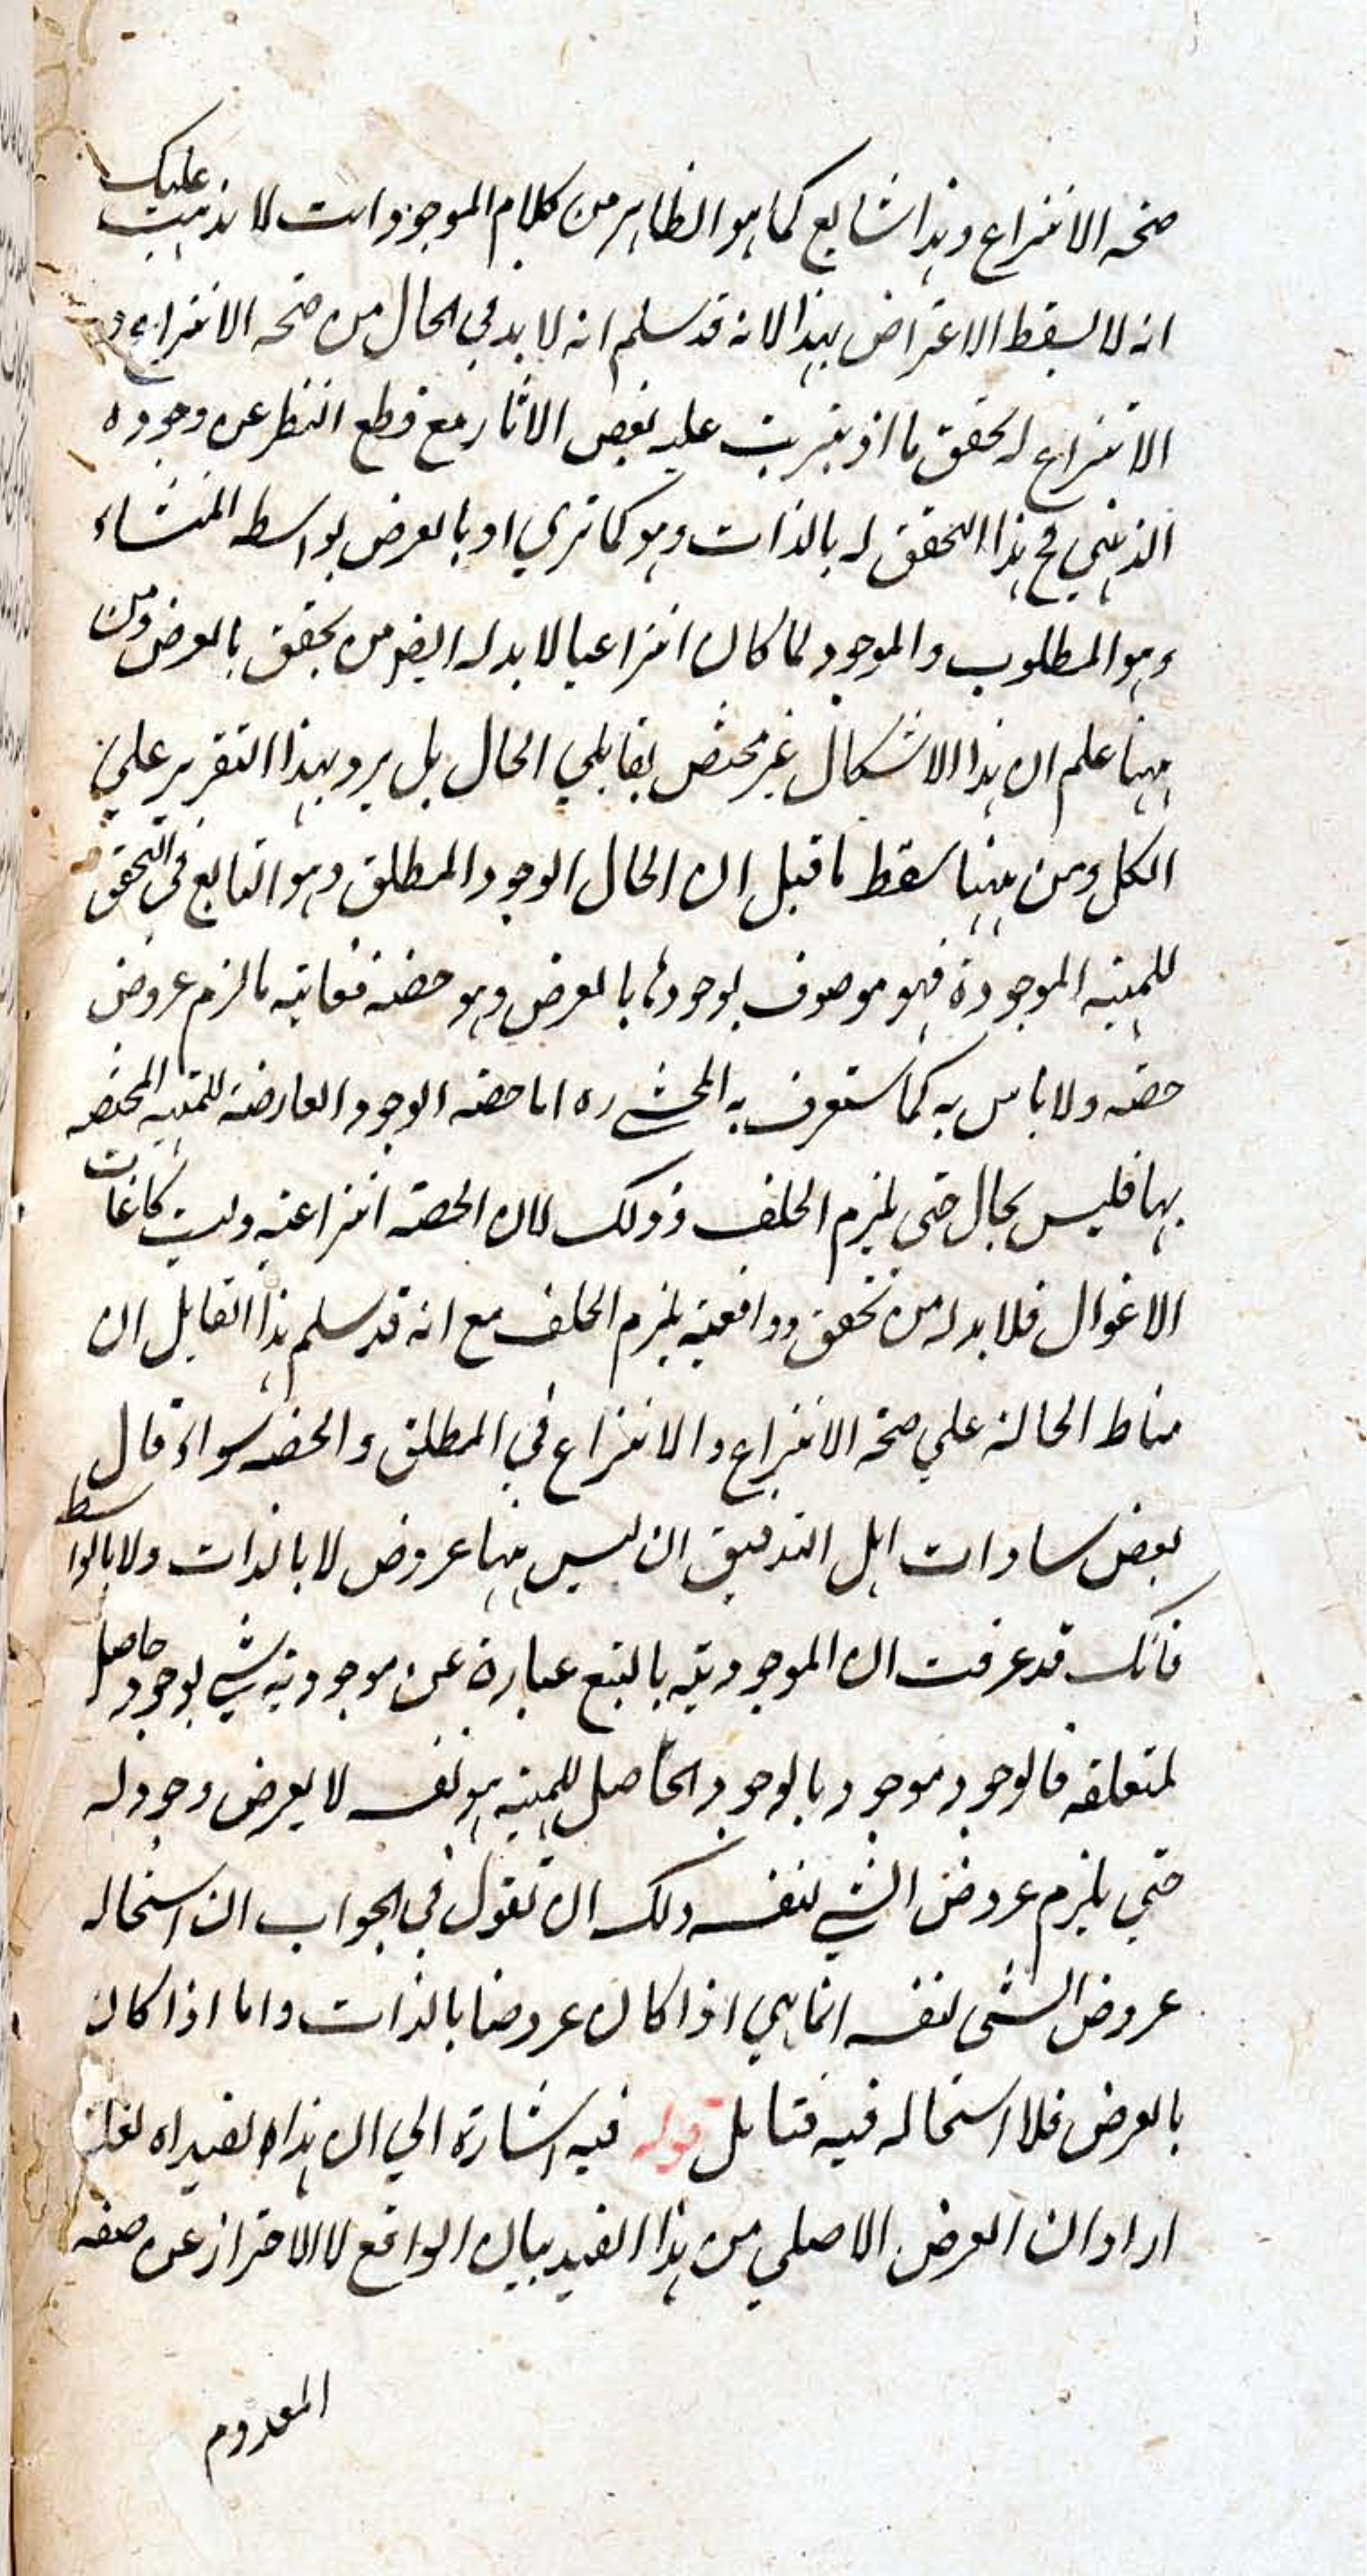 صحه الانتزاع وهذا شايع كما هو الظاهر من كلام الموجود وانت لا يذهب عليك
انه لا يسقط الاعتراض بهذا لانه قد سلم انه لا بد في الحال من صحه الانتزاع و
الانتزاع له تحقق ما اذ يترتب عليه بعض الاثار مع قطع النظر عن وجوده
الذهني فح هذا التحقق له بالذات وهو كما تري او بالعرض بواسطه المنشاء
وهو المطلوب والموجود لما كان انتزاعيا لا بد له ايضا من تحقق بالعرض ومن
ههنا علم ان هذا الاشكال غير مختص بقايلي الحال بل يرد بهذا التقرير علي
الكل ومن ههنا سقط ما قيل ان الحال الوجود المطلق وهو التابع في التحقق
للمهيه الموجودة فهو موصوف بوجودها بالعرض وهو حصة فغايته ما لزم عروض
حصته ولا باس به كما ستعرف به المحشي ره اما حصه الوجود العارضة للمهيه المختصه
بها فليس بحال حتي يلزم الخلف وذلك لان الحصة انتزاعيه وليست كانياب
الاغوال فلا بد له من تحقق وواقعيه يلزم الخلف مع انه قد سلم هذا القايل ان
مناط الحالة علي صحه الانتزاع والانتزاع في المطلق والحصه سواء قال
بعض سادات اهل التدقيق ان ليس ههنا عروض لا بالذات ولا بالواسطه
فانك قد عرفت ان الموجوديه بالتبع عبارة عن موجوديه شي بوجود حاصل
لمتعلقه فالوجود موجود بالوجود الحاصل للمهيه هو نفسه لا يعرض وجود له
حتي يلزم عروض الشي لنفسه ولك ان تقول في الجواب ان استحاله
عروض الشي لنفسه انما هي اذا كان عروضا بالذات واما اذا كان
بالعرض فلا استحاله فيه فتامل قوله فيه اشارة الي ان هذا القيد اه لعله
اراد ان الغرض الاصلي من هذا القيد بيان الواقع لا الاحتراز عن صفه
المعدوم